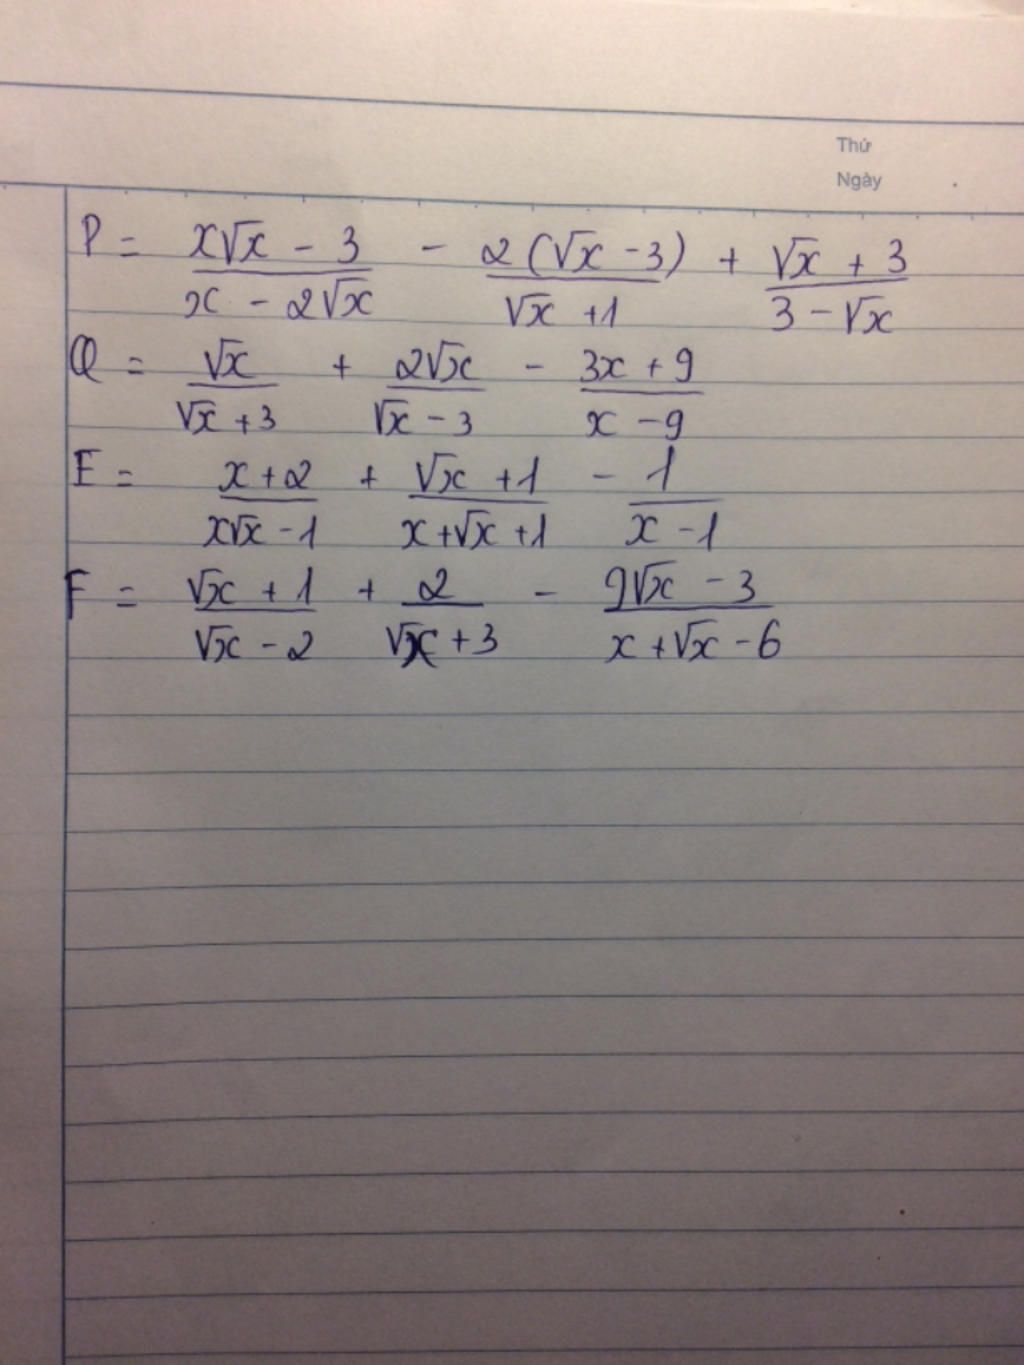 Thứ
Ngày
P = (x√x - 3)/(x - 2√x) - (2(√x - 3))/(√x + 1) + (√x + 3)/(3 - √x)
Q = (√x)/(√x + 3) + (2√x)/(√x - 3) - (3x + 9)/(x - 9)
E = (x + 2)/(x√x - 1) + (√x + 1)/(x + √x + 1) - 1/(x - 1)
F = (√x + 1)/(√x - 2) + 2/(√x + 3) - (9√x - 3)/(x + √x - 6)